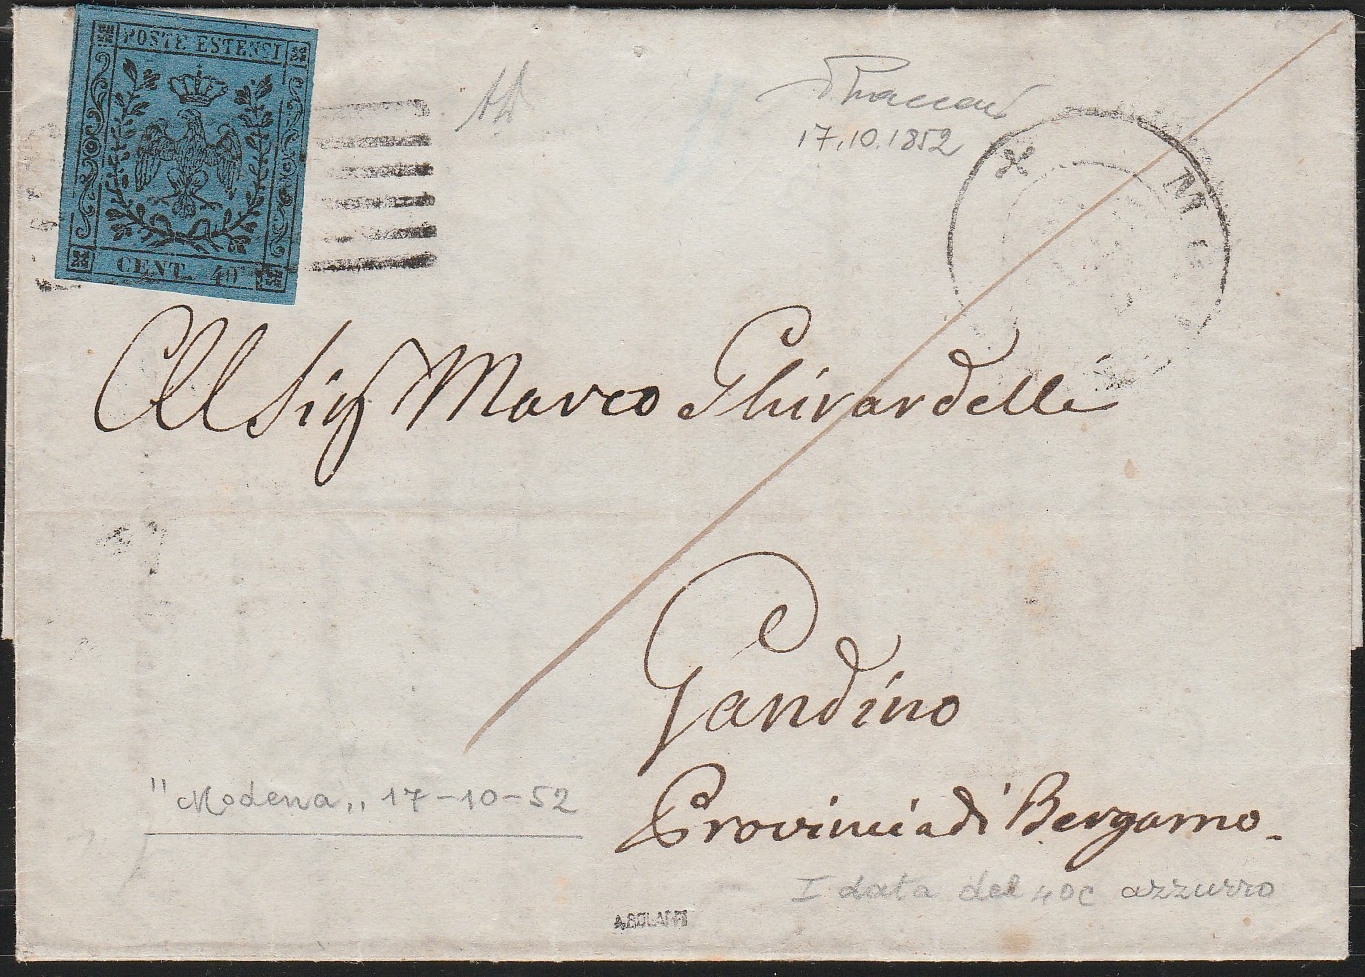 POSTE ESTENSI
CENT. 40
17.10.1852
M
Al Sig Marco Ghirardelli
Gandino
"Modena„ 17-10-52
Provincia di Bergamo.
I data del 40c azzurro
A.BOLAFFI